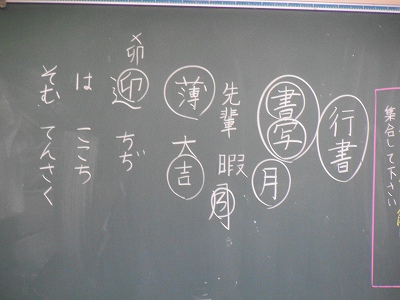 集合して下さい
行書
書写 月
先輩 暇
薄 大吉
×卯
迎 ちぢ
は ここち
そむ てんさく